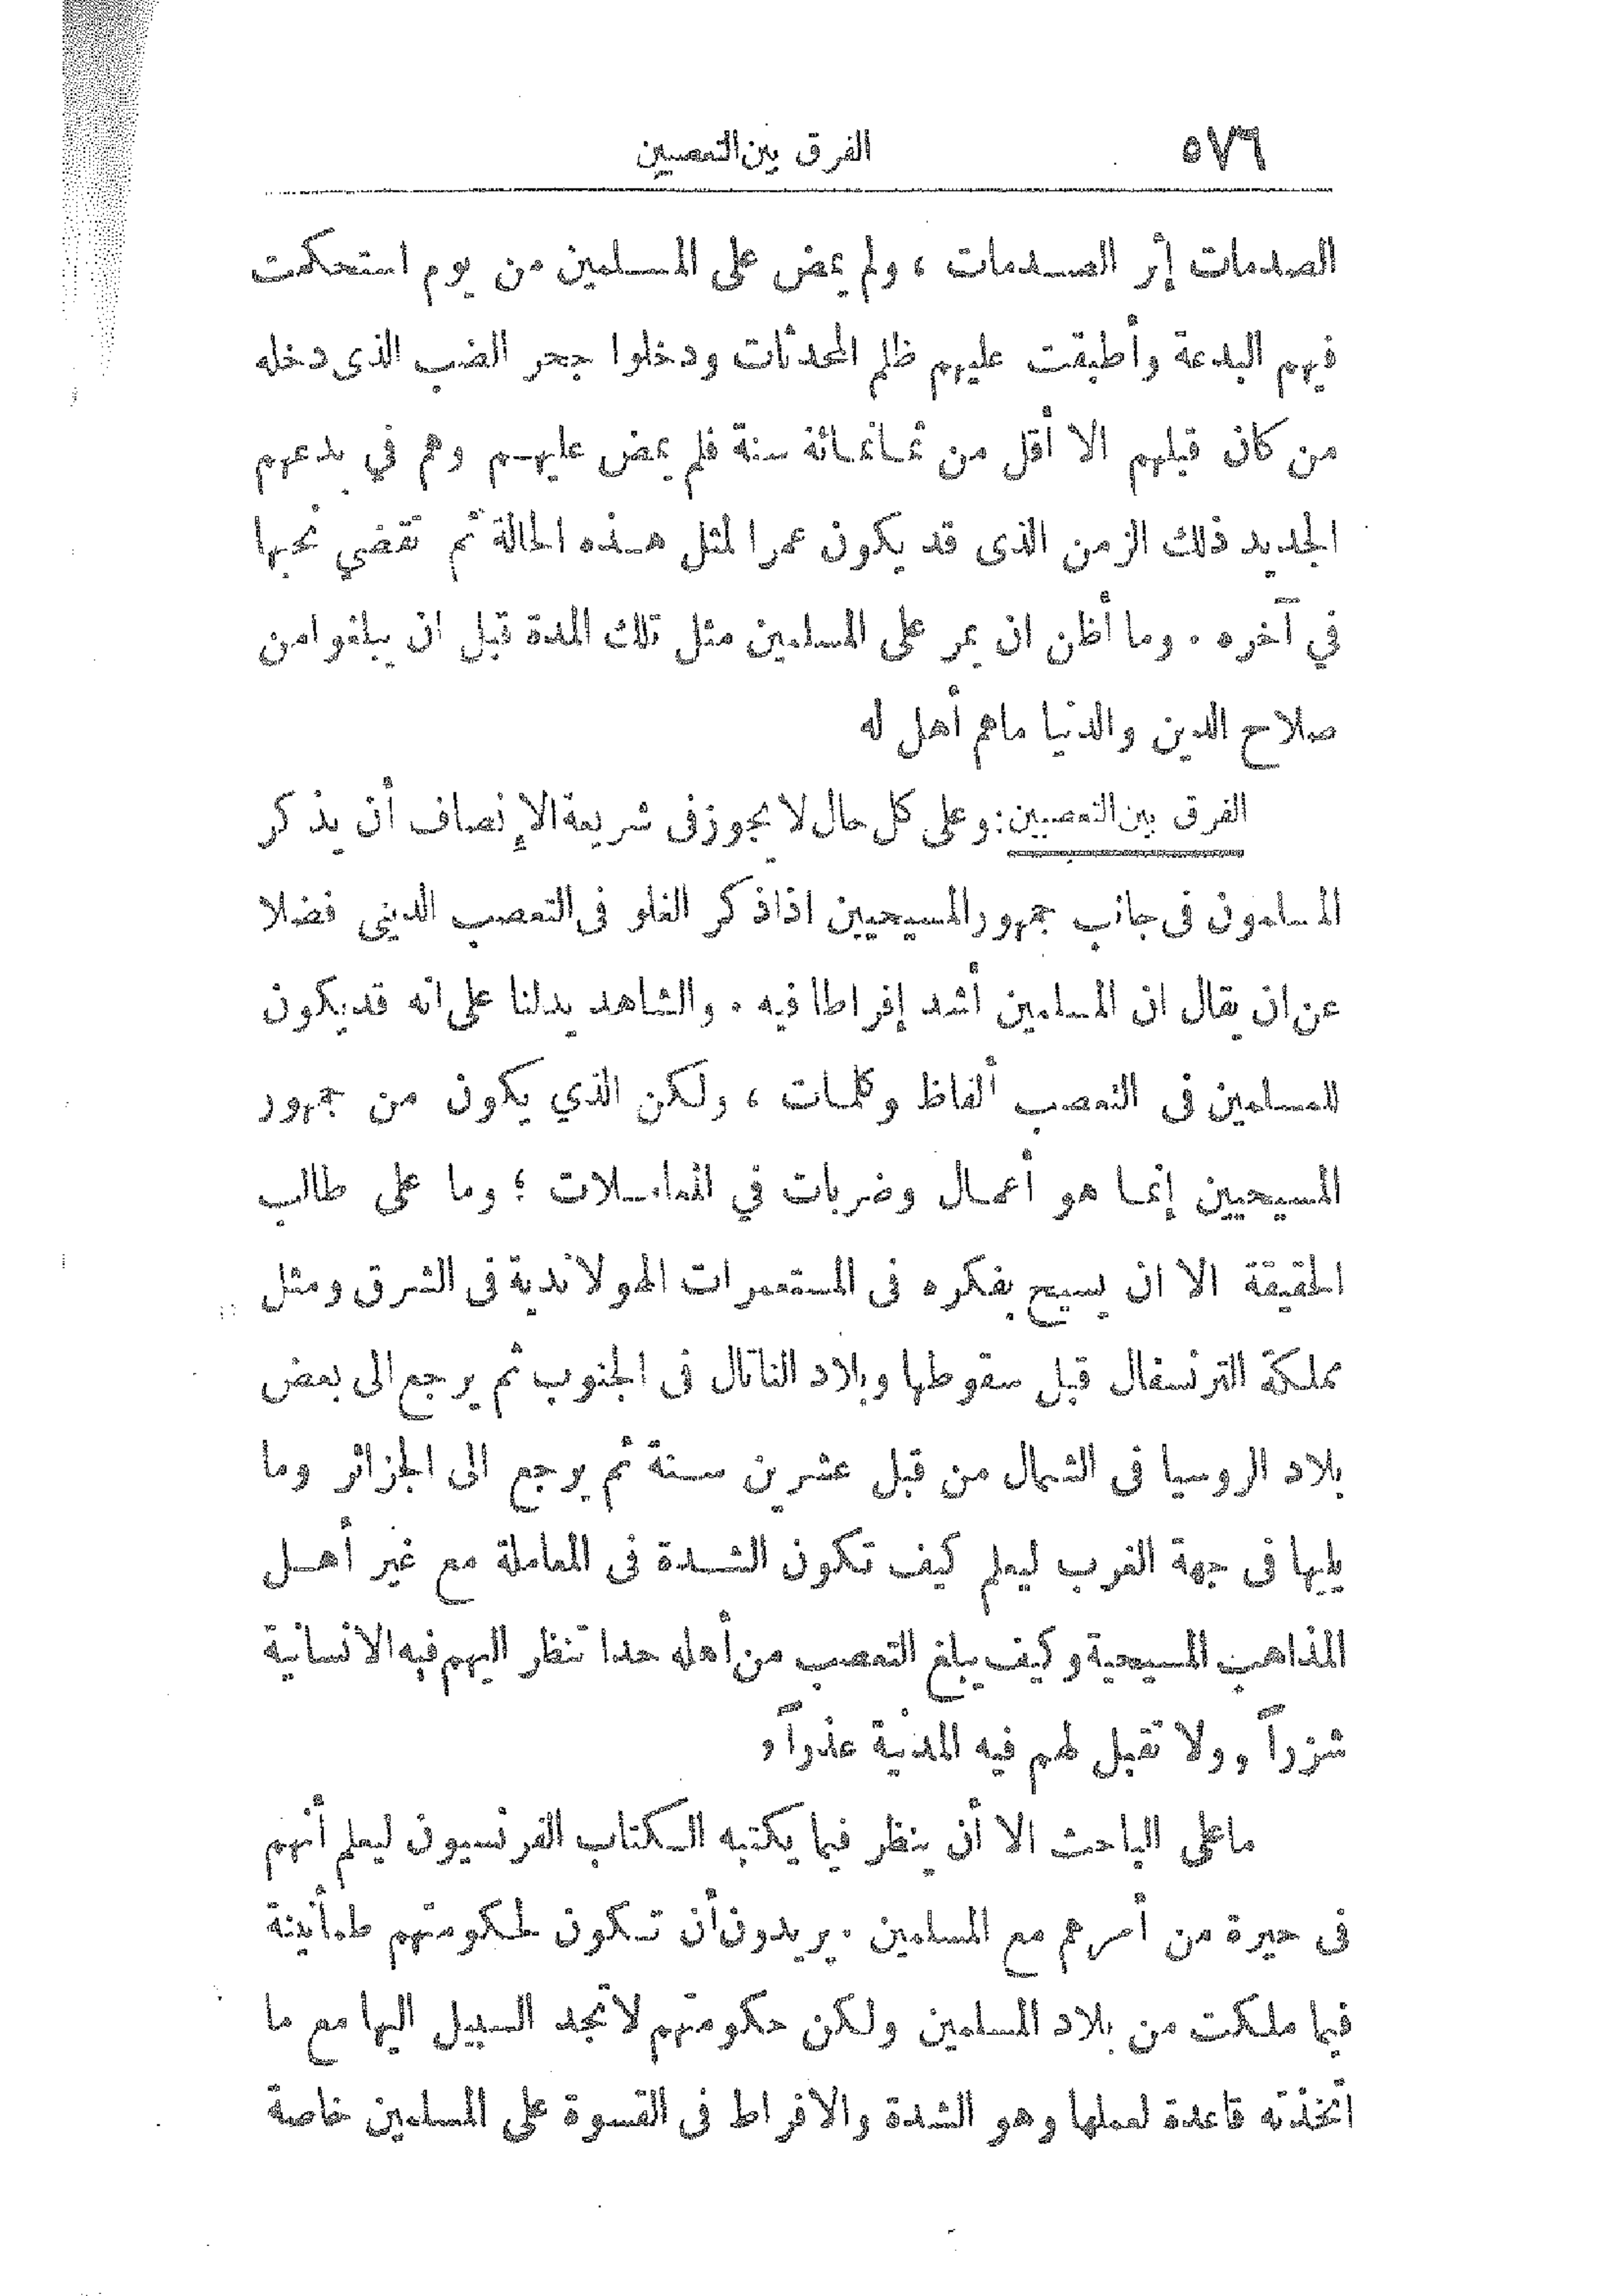 ٥٧٦ الفرق بين التعصبين
الصدمات إثر الصدمات ، ولم يمض على المسلمين من يوم استحكمت
فيهم البدعة وأطبقت عليهم ظلم المحدثات ودخلوا جحر الضب الذى دخله
من كان قبلهم الا أقل من ثمانمائة سنة فلم يمض عليهم وهم في بدعهم
الجديد ذلك الزمن الذى قد يكون عمرا لمثل هذه الحالة ثم تقضي نحبها
في آخره . وما أظن ان يمر على المسلمين مثل تلك المدة قبل ان يبلغوا من
صلاح الدين والدنيا ماهم أهل له
الفرق بين التعصبين : وعلى كل حال لا يجوز فى شريعة الإنصاف أن يذكر
المسلمون فى جانب جمهور المسيحيين اذا ذكر الغلو فى التعصب الدينى فضلا
عن ان يقال ان المسلمين أشد إفراطا فيه . والشاهد يدلنا على انه قد يكون
للمسلمين فى التعصب ألفاظ وكلمات ، ولكن الذي يكون من جمهور
المسيحيين إنما هو أعمال وضربات في المعاملات ؛ وما على طالب
الحقيقة الا ان يسيح بفكره فى المستعمرات الهولاندية فى الشرق ومثل
مملكة الترنسفال قبل سقوطها وبلاد الناتال فى الجنوب ثم يرجع الى بعض
بلاد الروسيا فى الشمال من قبل عشرين سنة ثم يرجع الى الجزائر وما
يليها فى جهة الغرب ليعلم كيف تكون الشدة فى المعاملة مع غير أهل
المذاهب المسيحية وكيف يبلغ التعصب من أهله حدا تنظر اليهم فيه الانسانية
شزراً و ولا تقبل لهم فيه المدنية عذراً و
ماعلى الباحث الا أن ينظر فيما يكتبه الكتاب الفرنسيون ليعلم أنهم
فى حيرة من أمرهم مع المسلمين . يريدون أن تكون لحكومتهم طمأنينة
فيما ملكت من بلاد المسلمين ولكن حكومتهم لاتجد السبيل اليها مع ما
اتخذته قاعدة لعملها وهو الشدة والافراط فى القسوة على المسلمين خاصة